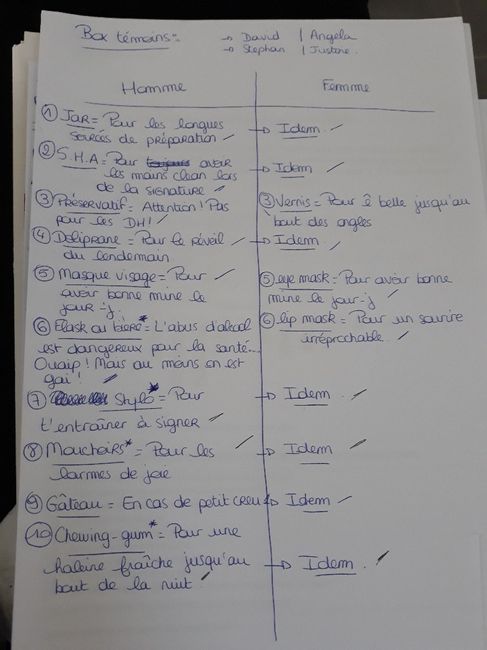 Box témoins :  -> David | Angela
-> Stephan | Justine.
Homme Femme
① JAR = Pour les longues
soirées de préparation -> Idem
② S.H.A = Pour avoir -> Idem
les mains clean lors
de la signature
③ Préservatif = Attention ! Pas
pour les DH !
③ Vernis = Pour ê belle jusqu'au
bout des ongles
④ Doliprane = Pour le réveil -> Idem
du lendemain
⑤ Masque visage = Pour
avoir bonne mine le
jour -j
⑤ eye mask = Pour avoir bonne
mine le jour -j
⑥ Flask ou biere* = L'abus d'alcool
est dangereux pour la santé...
Ouaip ! Mais au moins on est
gai !
⑥ lip mask = Pour un sourire
irréprochable.
⑦ Stylo* = Pour -> Idem
t'entraîner à signer
⑧ Mouchoirs* = Pour les -> Idem
larmes de joie
⑨ Gâteau = En cas de petit creux -> Idem
⑩ Chewing-gum* = Pour une
haleine fraîche jusqu'au -> Idem
bout de la nuit